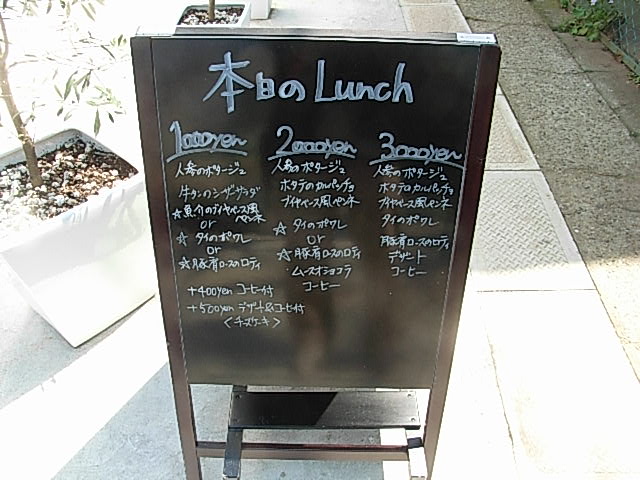 本日のLunch
1000yen
人参のポタージュ
牛タンのシーザーサラダ
☆魚介のブイヤベース風
ペンネ
or
☆タイのポワレ
or
☆豚肩ロースのロティ
+400yen コーヒー付
+500yen デザート&コーヒー付
<チーズケーキ>
2000yen
人参のポタージュ
ホタテのカルパッチョ
ブイヤベース風ペンネ
☆タイのポワレ
or
☆豚肩ロースのロティ
ムースオショコラ
コーヒー
3000yen
人参のポタージュ
ホタテのカルパッチョ
ブイヤベース風ペンネ
タイのポワレ
豚肩ロースのロティ
デザート
コーヒー